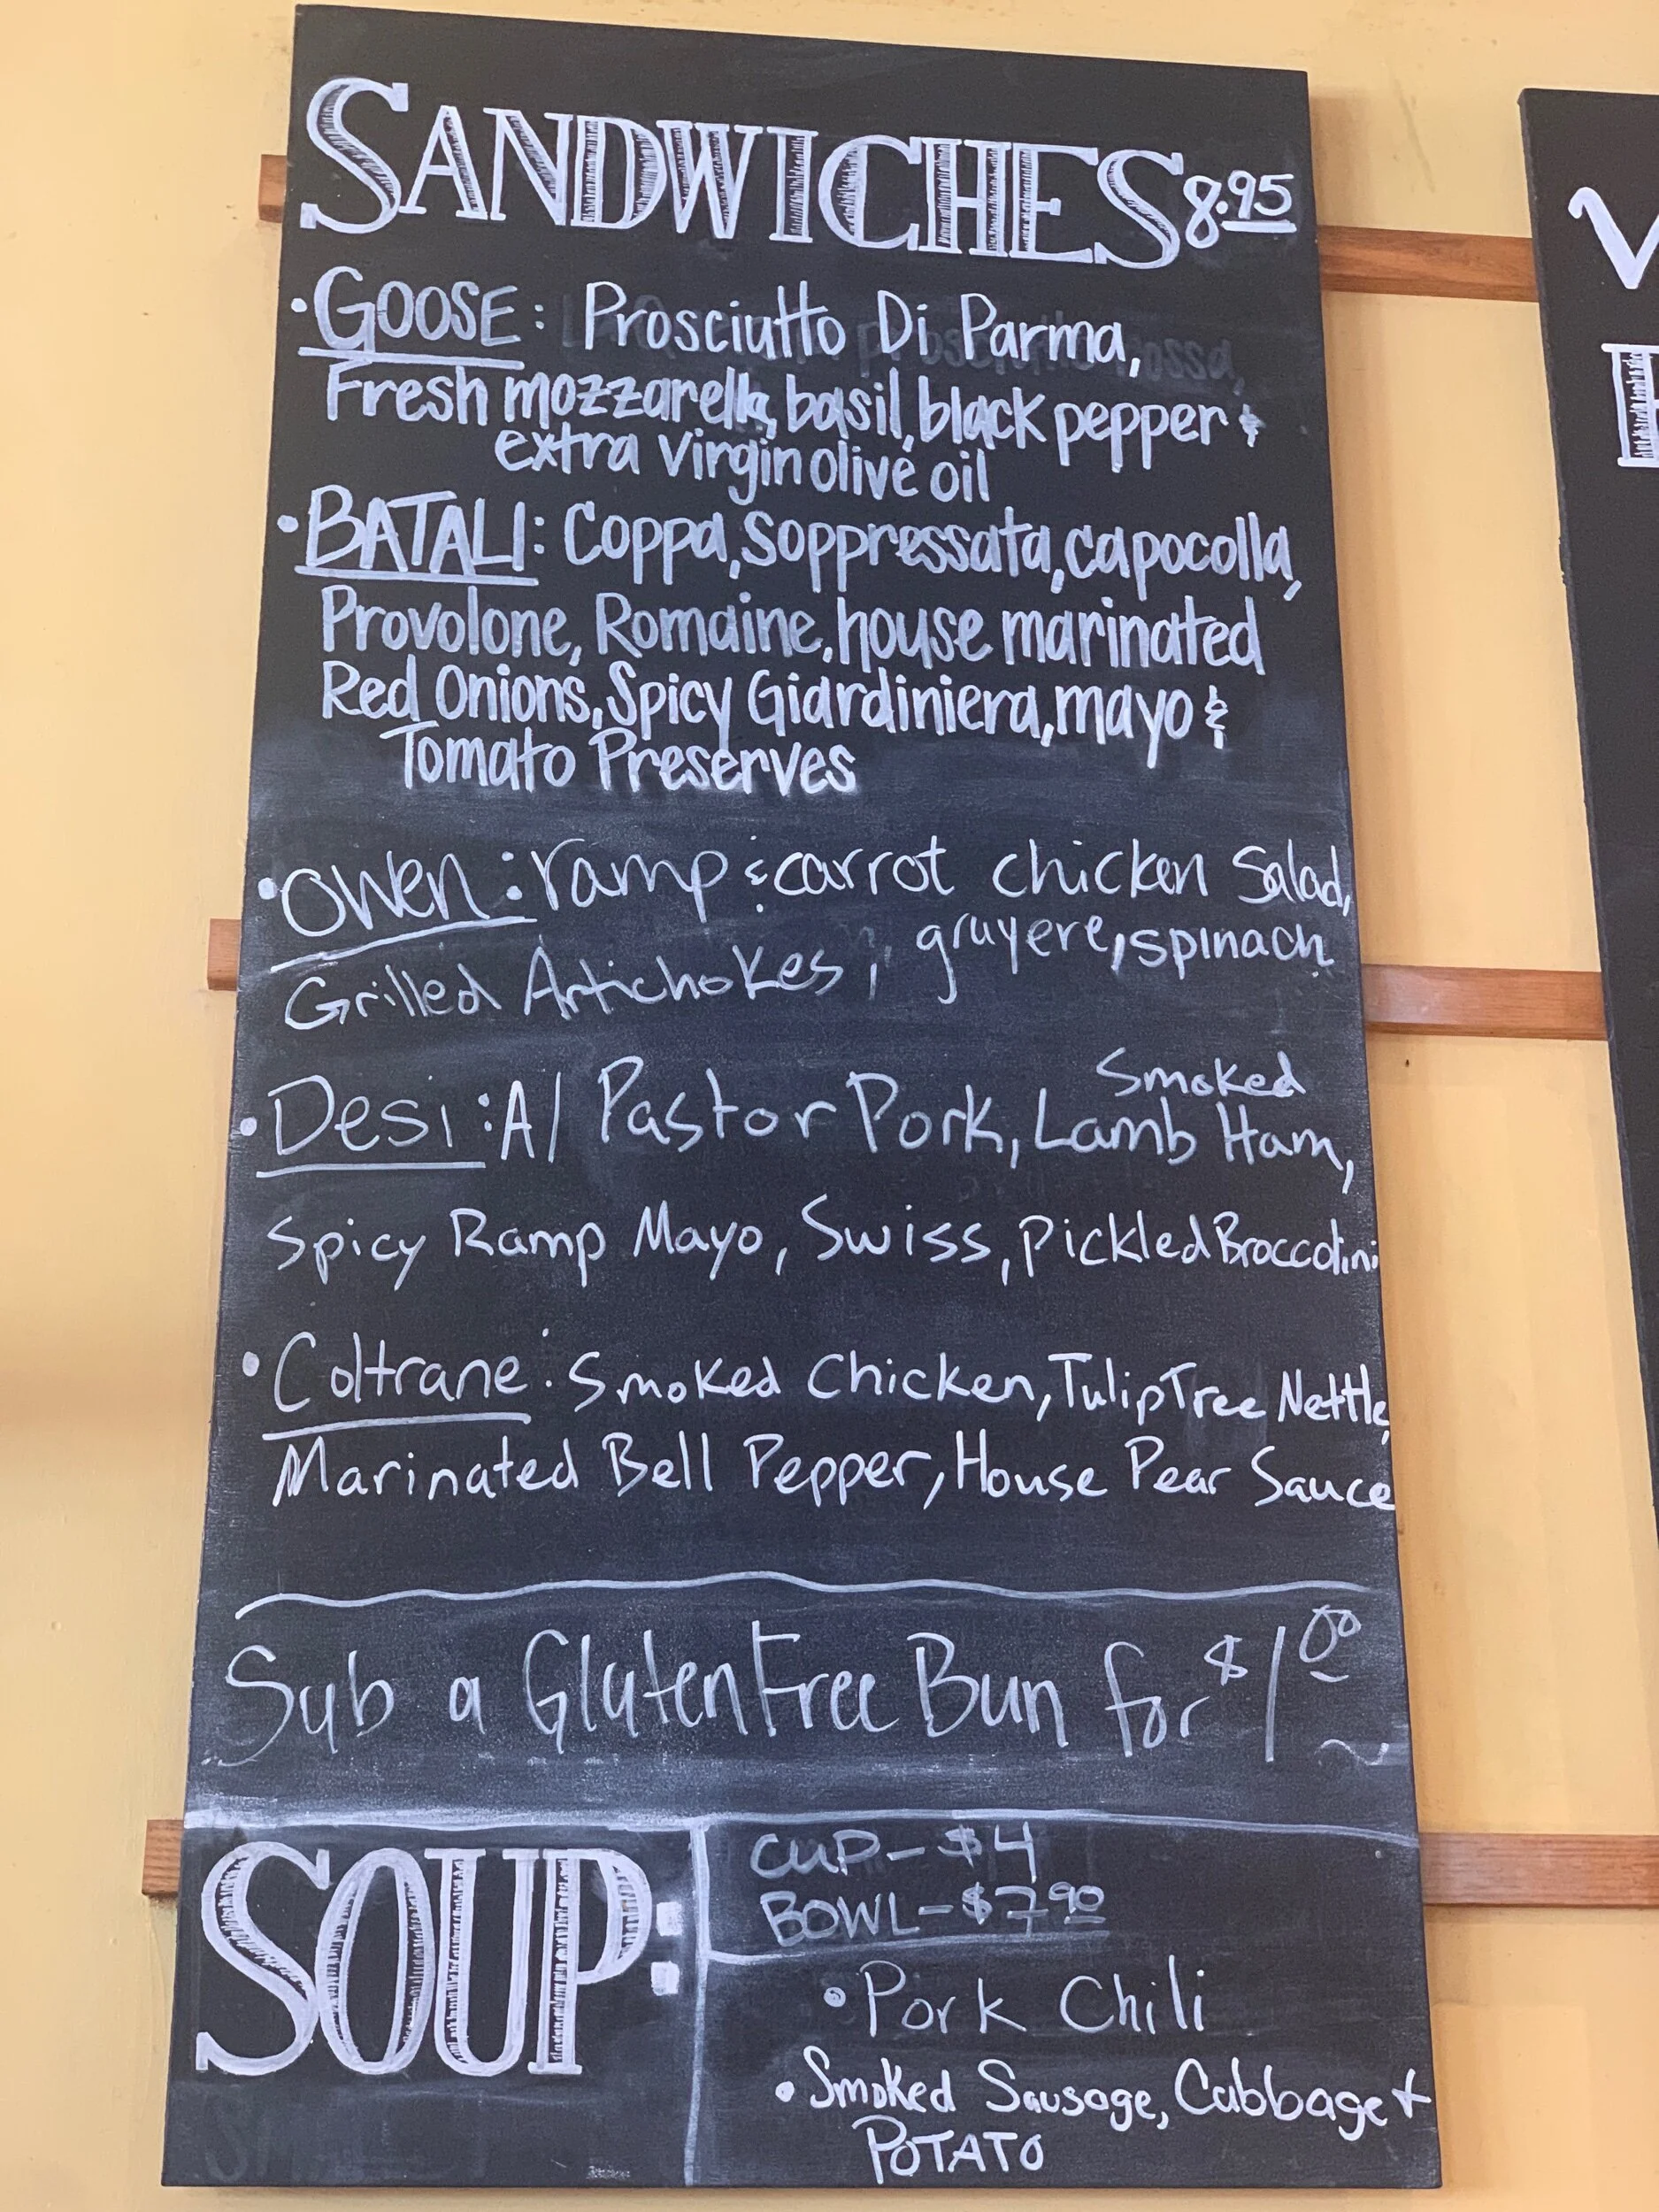 SANDWICHES 8.95
• GOOSE: Prosciutto Di Parma,
Fresh mozzarella, basil, black pepper &
extra virgin olive oil
• BATALI: Coppa, Soppressata, capocolla,
Provolone, Romaine, house marinated
Red Onions, Spicy Giardiniera, mayo &
Tomato Preserves
• Owen: ramp & carrot chicken Salad,
Grilled Artichokes, gruyere, spinach
• Desi: Al Pastor Pork, Lamb Smoked Ham,
Spicy Ramp Mayo, Swiss, Pickled Broccolini
• Coltrane: Smoked Chicken, TulipTree Nettle,
Marinated Bell Pepper, House Pear Sauce
Sub a Gluten Free Bun for $1.00
SOUP:
CUP- $4
BOWL- $7.90
• Pork Chili
• Smoked Sausage, Cabbage +
POTATO